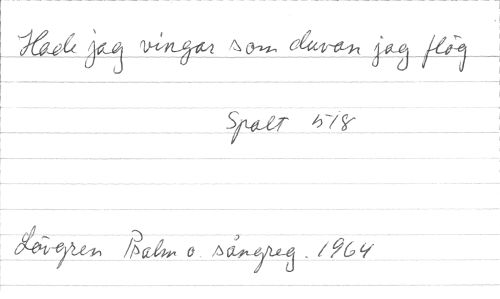 Hade jag vingar som duvan jag flög
Spalt 518
Lövgren Psalm o. sångreg. 1964